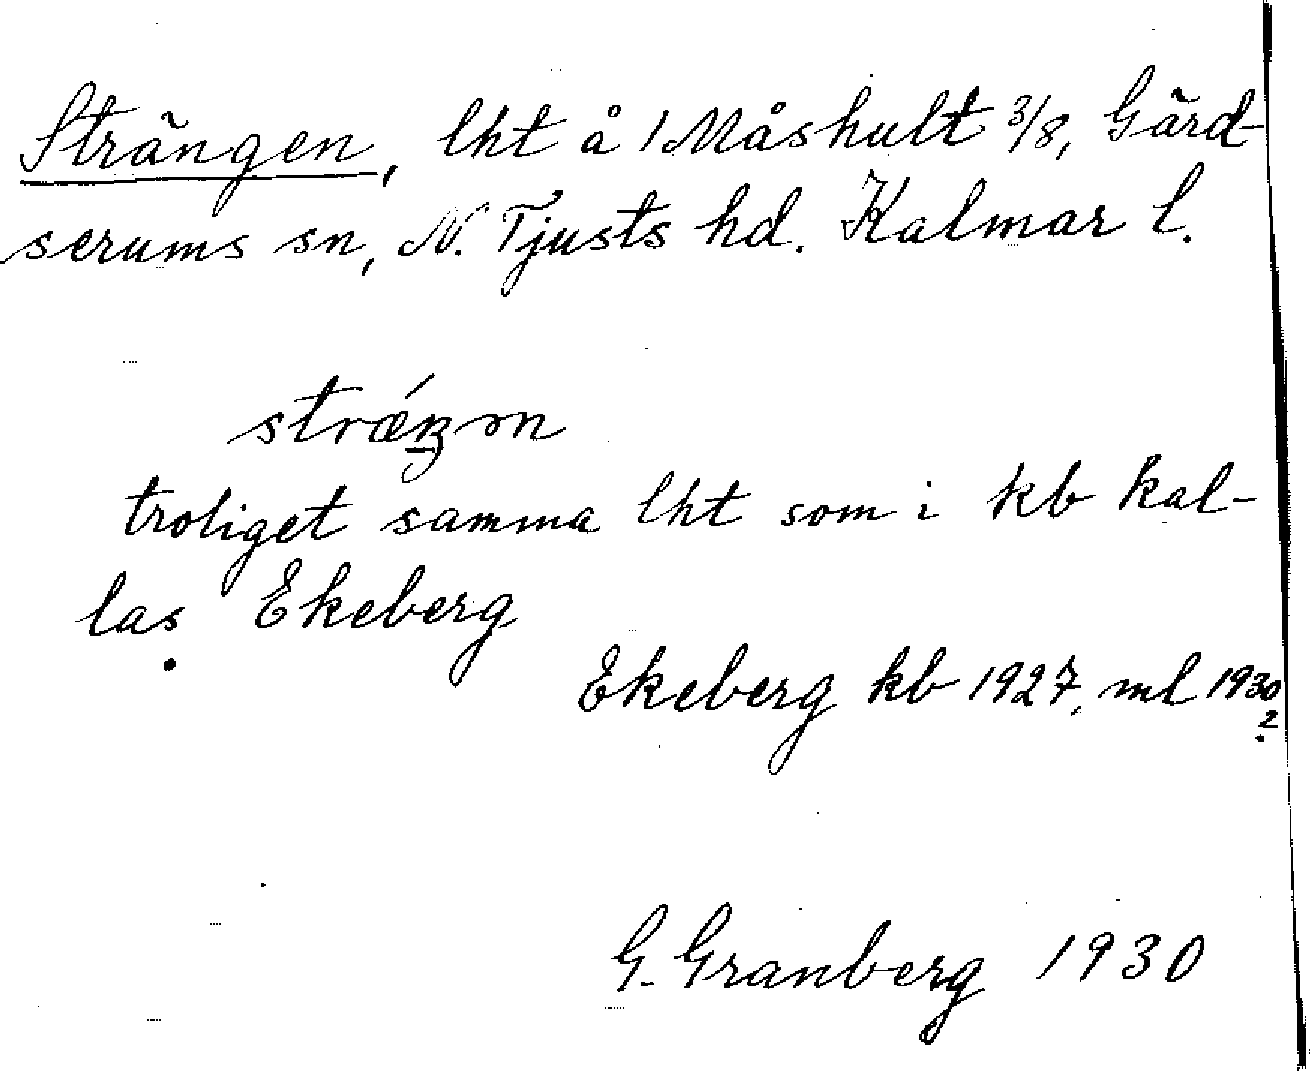 Strängen, lht å 1 Måshult 3/8, Gärd-
serums sn, N. Tjusts hd. Kalmar l.
troliget samma lht som i kb kal-
las Ekeberg
Ekeberg kb 1927, ml 1930
2
G. Granberg 1930